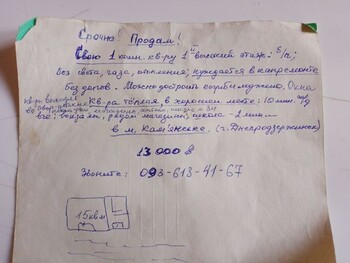 Срочно! Продам!
Свою 1 комн. кв-ру 1 высокий этаж: б/б;
без света, газа, отопления; нуждается в капремонте
без долгов. Можно добротъ
Окна
кв-ра тёплая в хорошем месте: 10 мин.
вокзал, рядом магазины, школа - 2 мин...
в м. Кам'янське. (г. Днепродзержинск)
13 000 $
Звоните: 093-613-41-67
15 кв м